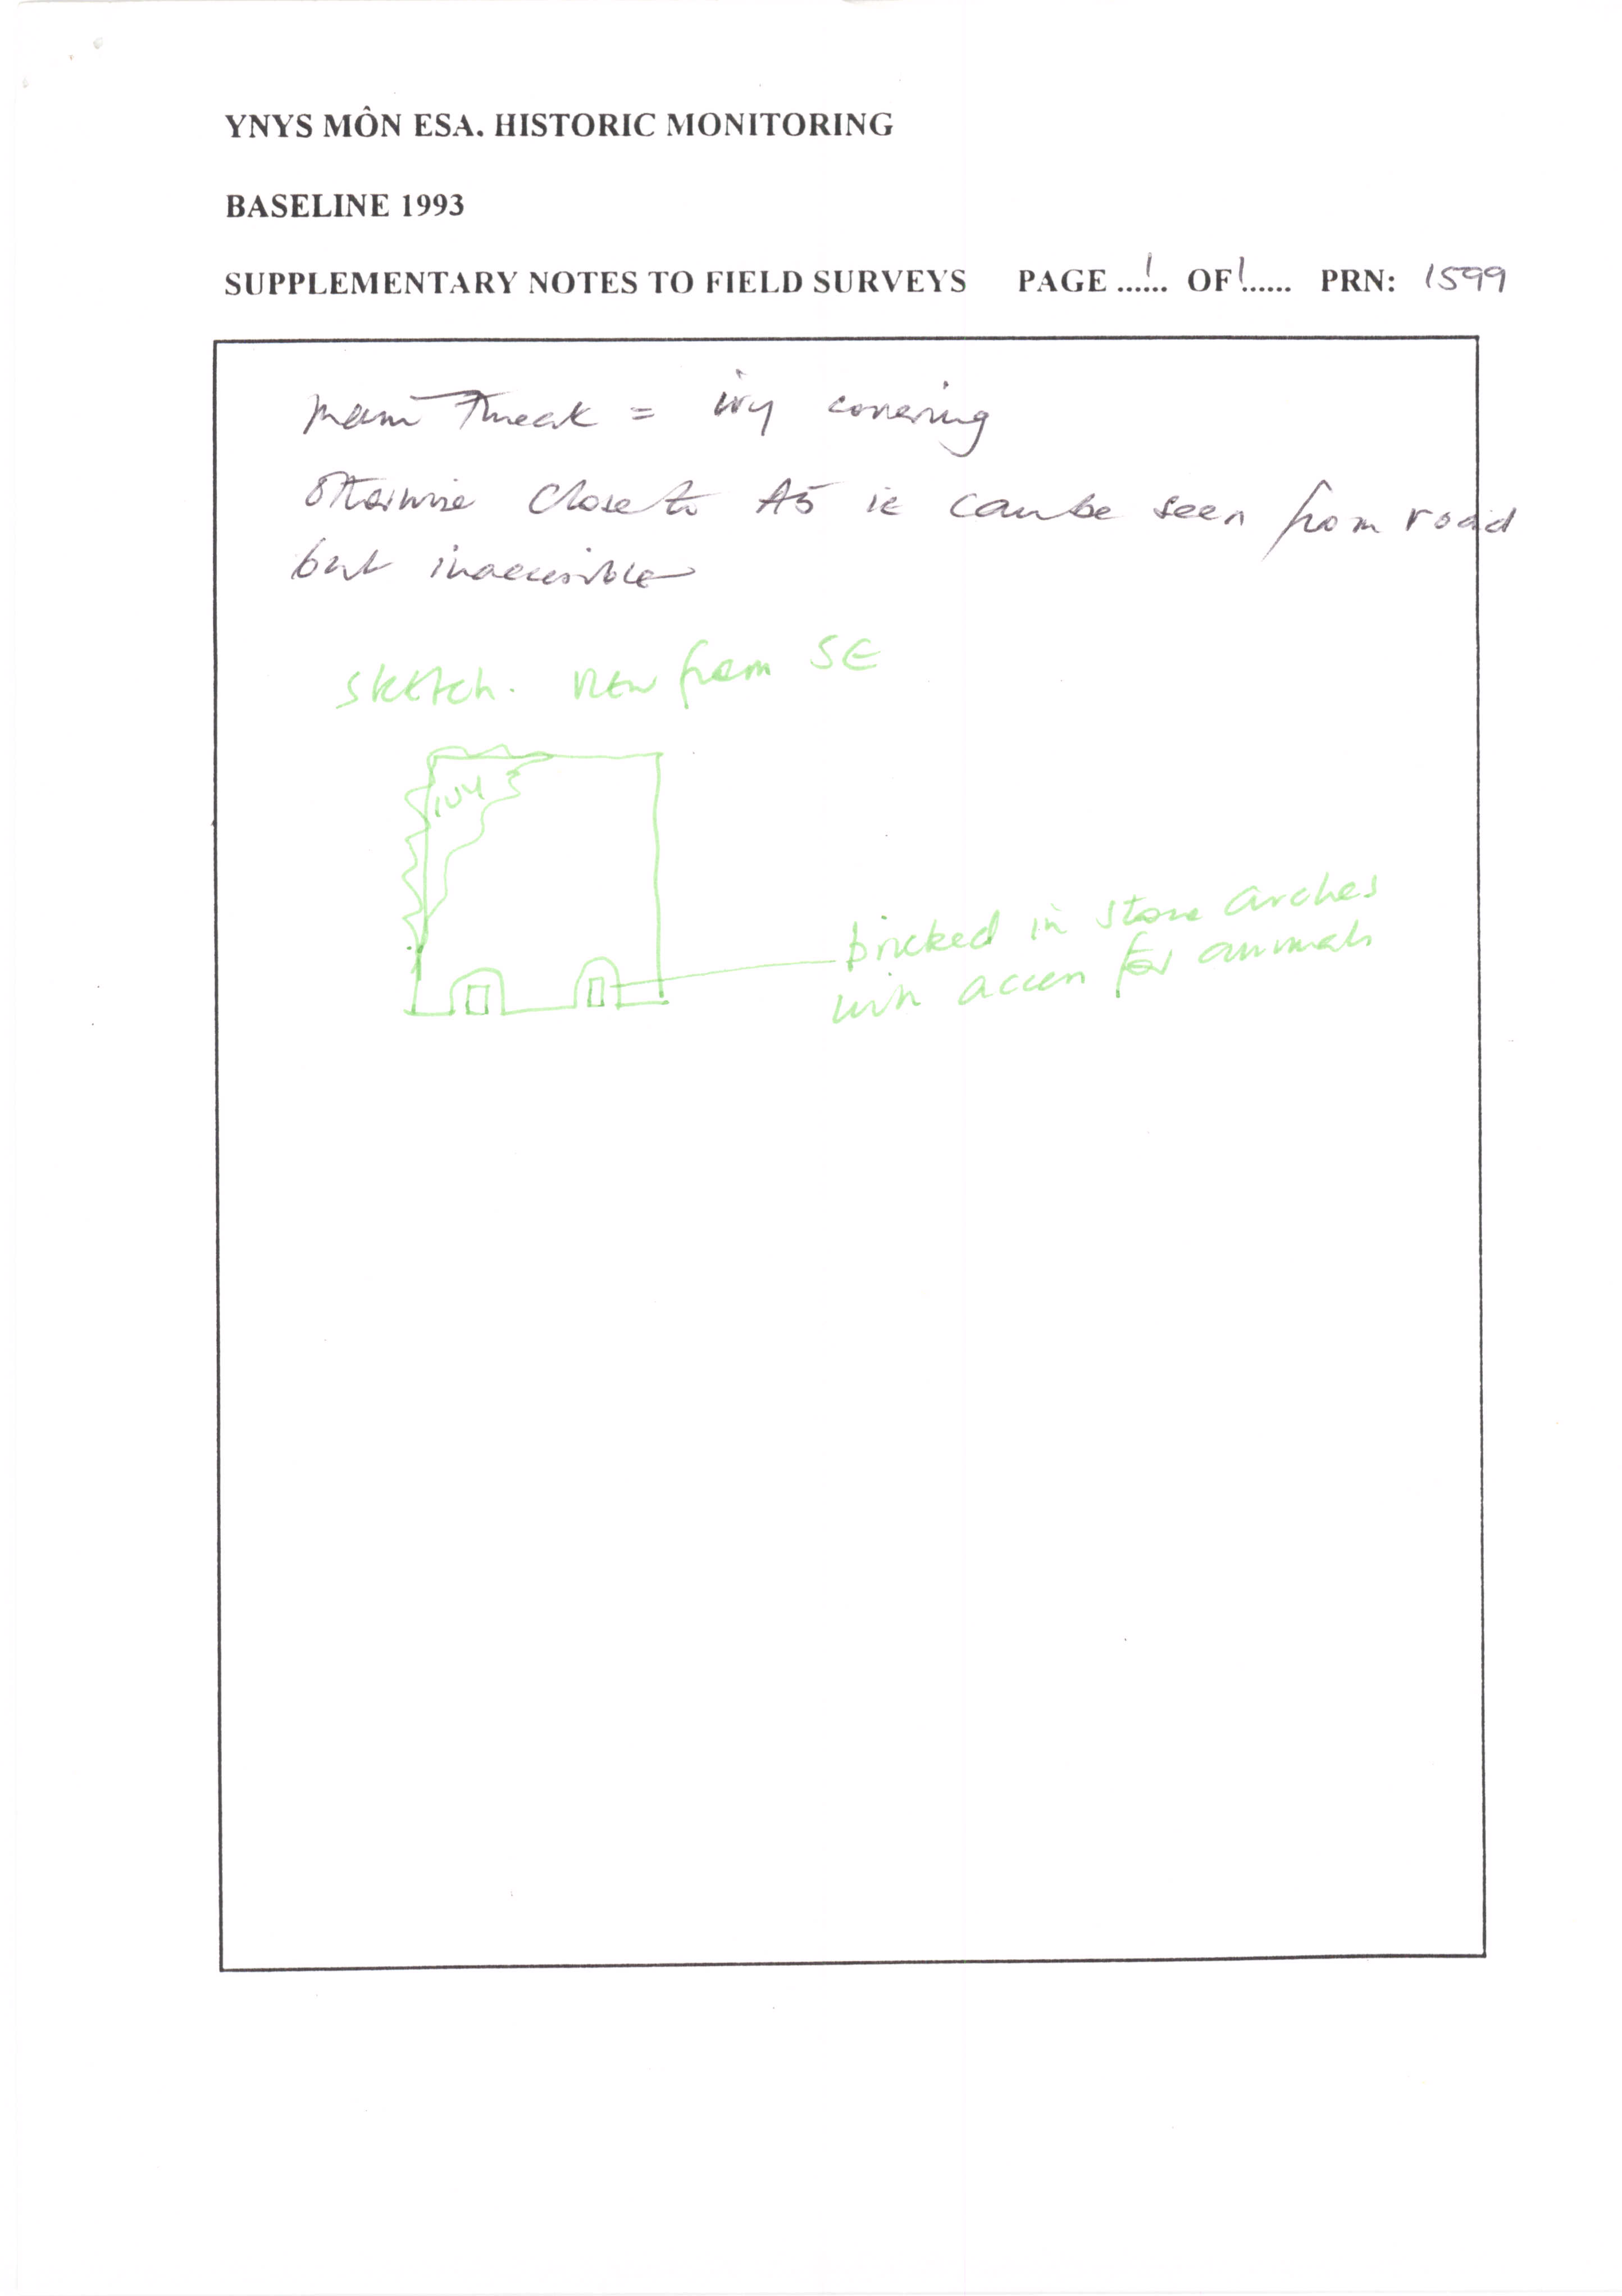 YNYS MÔN ESA. HISTORIC MONITORING
BASELINE 1993
SUPPLEMENTARY NOTES TO FIELD SURVEYS PAGE ...1... OF 1...... PRN: 1599
Main Threat = ivy covering
Otherwise close to A5 ie can be seen from road
but inaccessible
Sketch. View from SE
ivy
bricked in stone arches
with access for animals